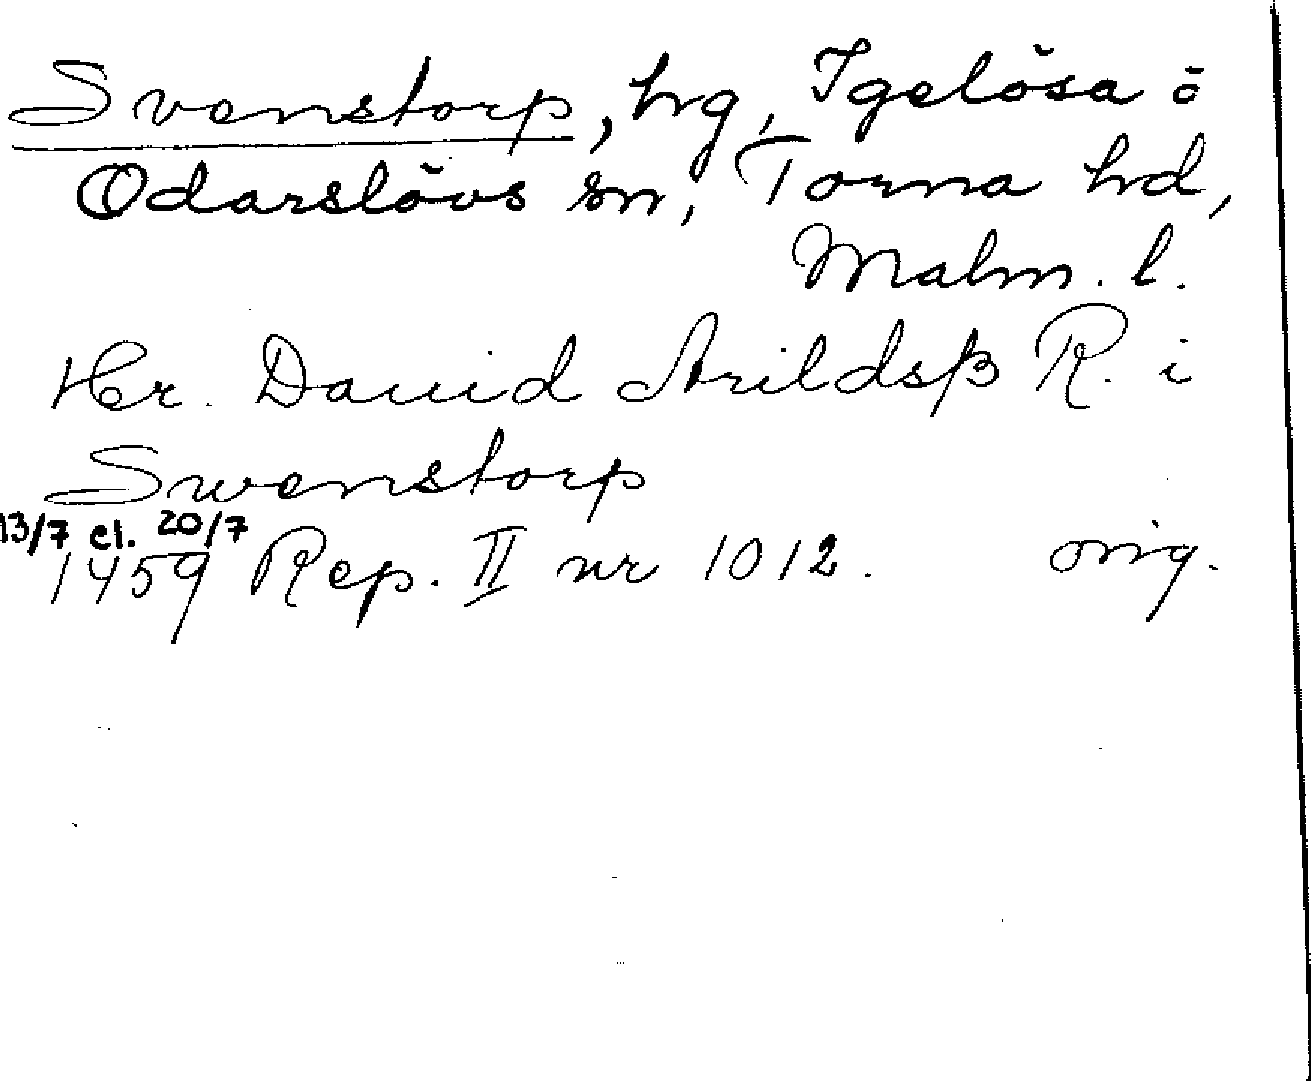 Svenstorp, hrg, Igelösa o
Odarslövs sn, Torna hd,
Malm. l.
Her. Dauid Arildsß R. i
Swenstorp
13/7 el. 20/7
1459 Rep. II nr 1012. orig.